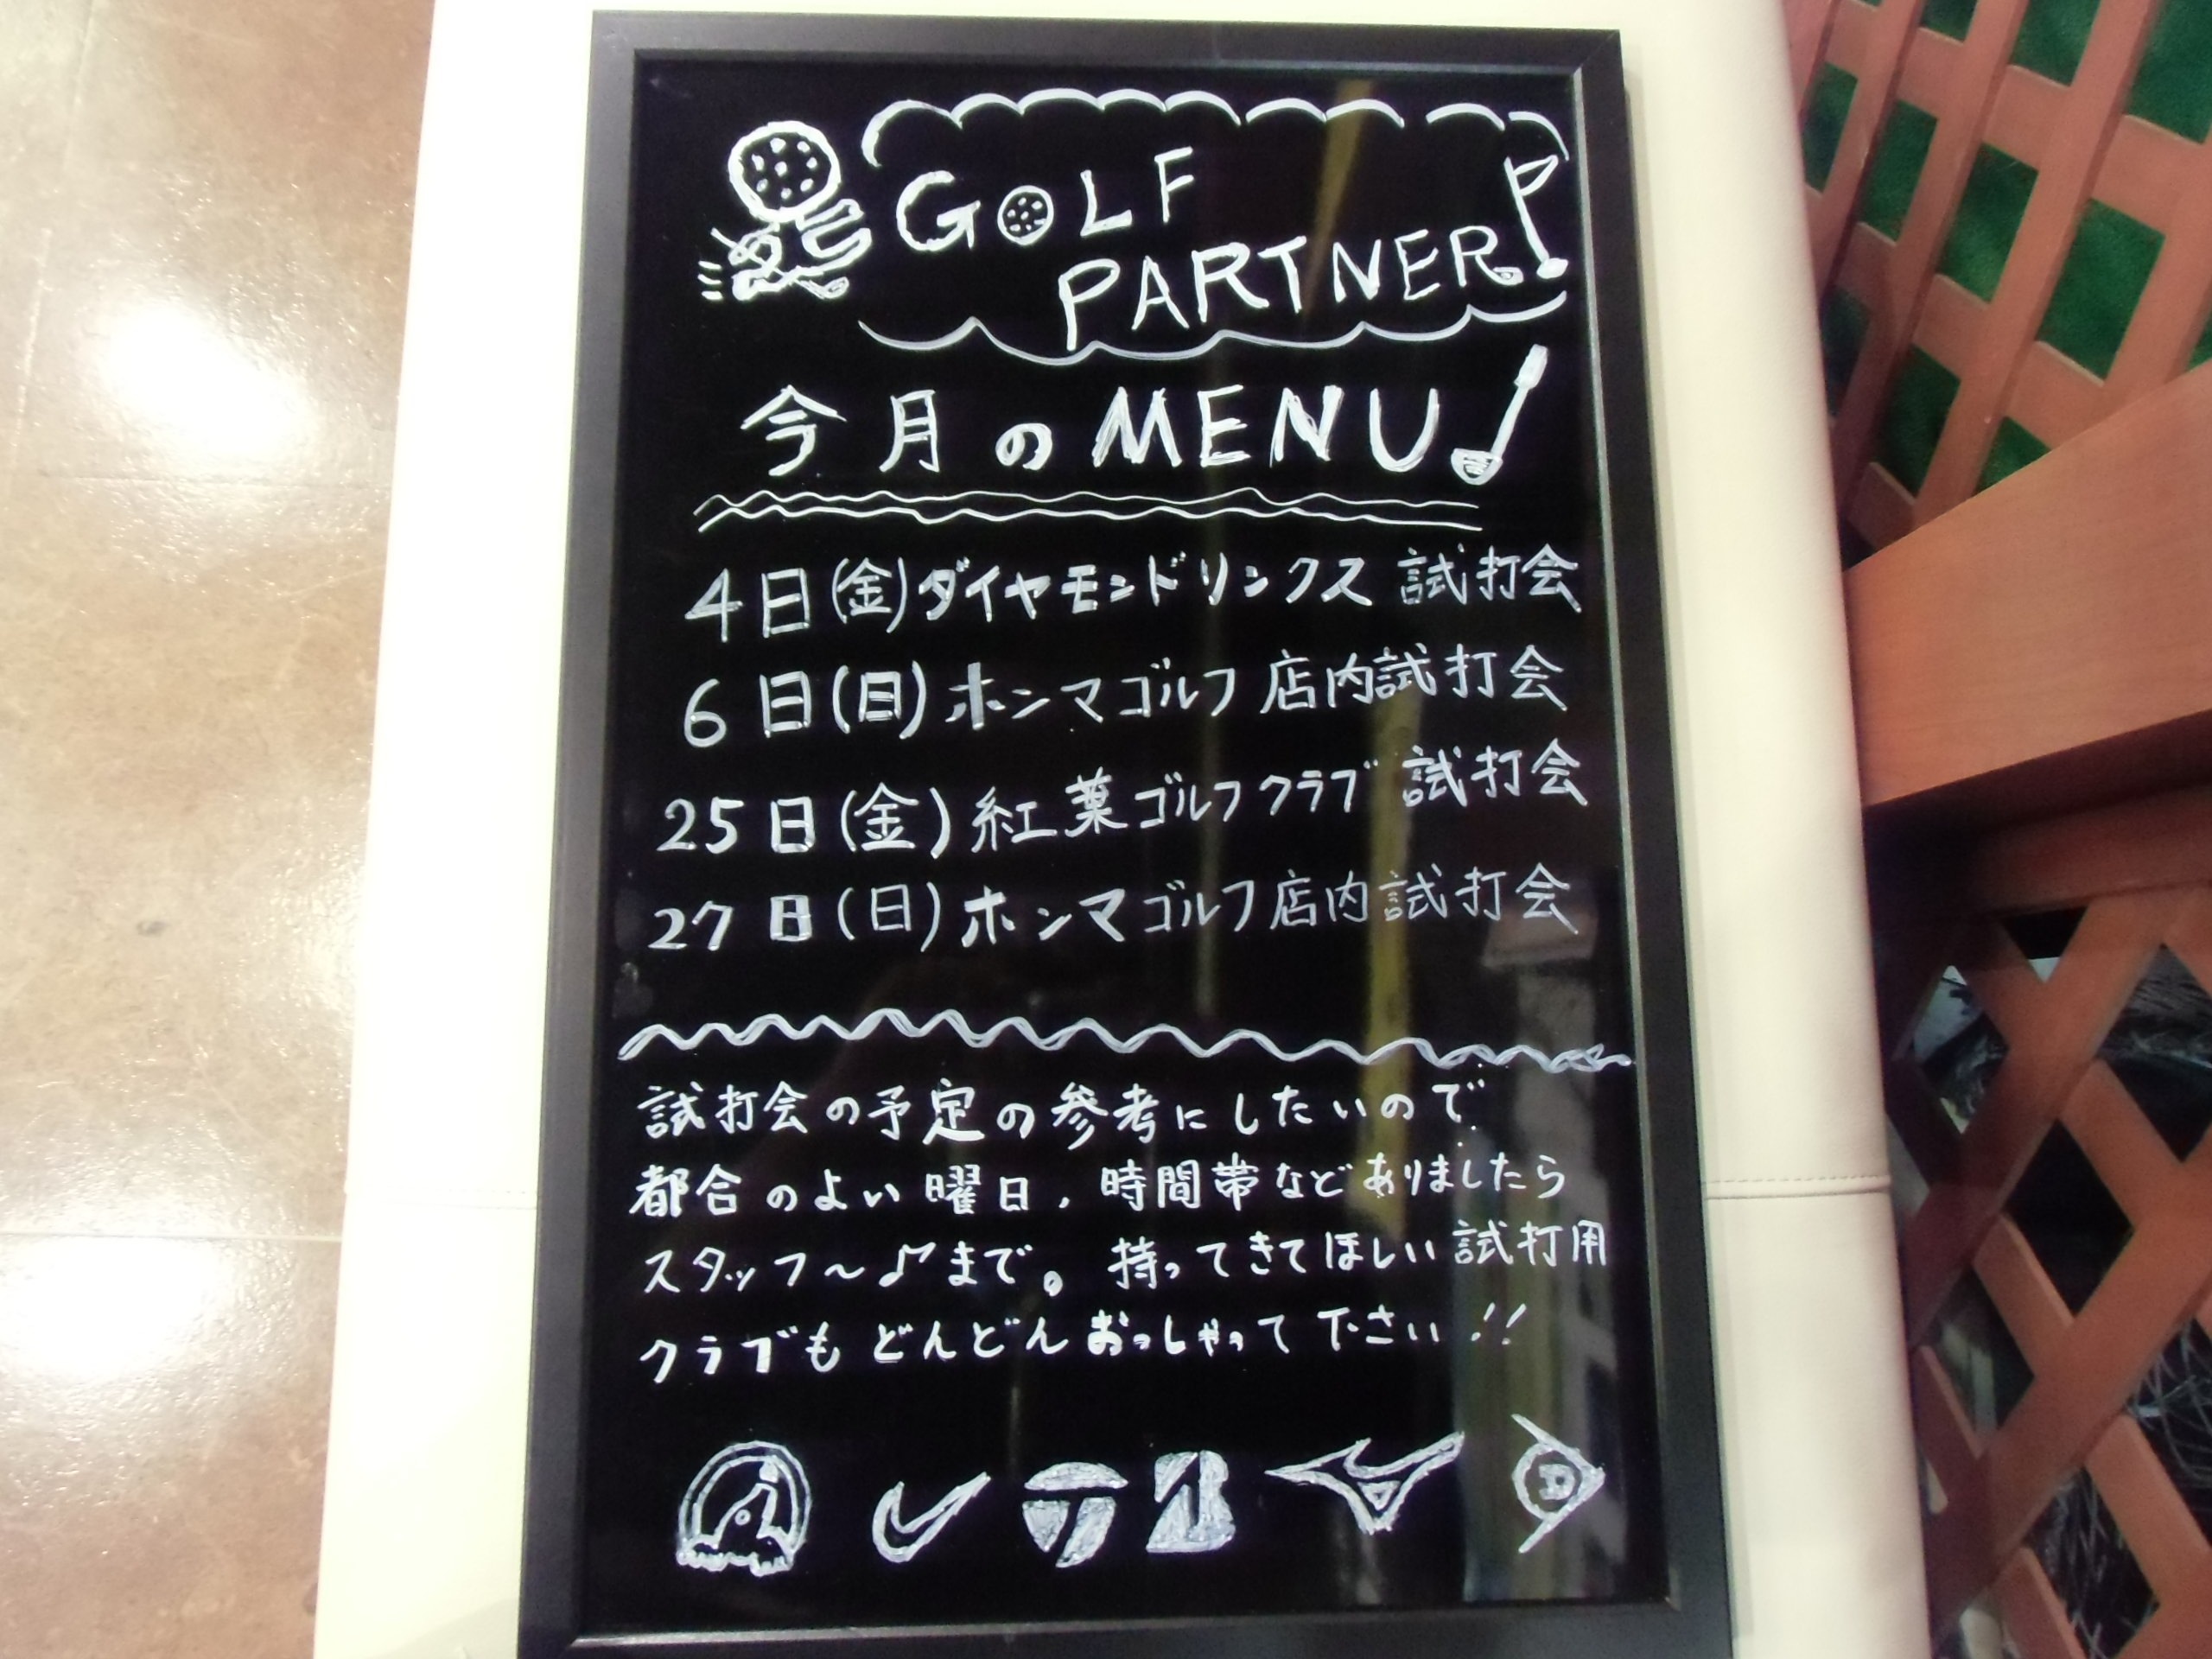 GOLF
PARTNER
今月のMENU
4日(金)ダイヤモンドリンクス 試打会
6日(日)ホンマゴルフ店内試打会
25日(金)紅葉ゴルフクラブ 試打会
27日(日)ホンマゴルフ店内試打会
試打会の予定の参考にしたいので
都合のよい曜日、時間帯などありましたら
スタッフ〜♪まで。持ってきてほしい試打用
クラブもどんどんおっしゃって下さい!!